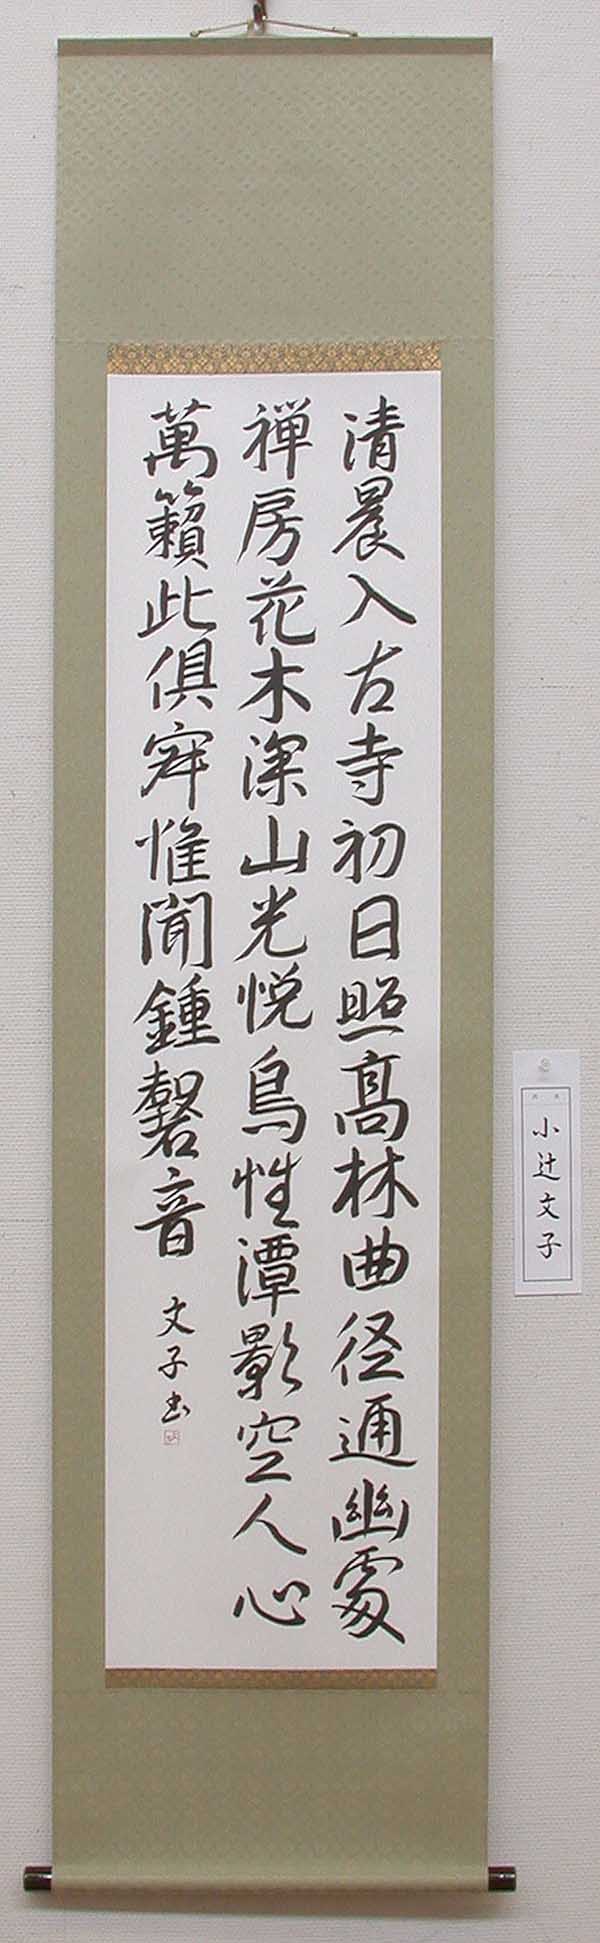 清晨入古寺初日照高林曲径通幽處
禅房花木深山光悦鳥性潭影空人心
萬籟此倶寂惟聞鍾磬音
文子書
小辻文子